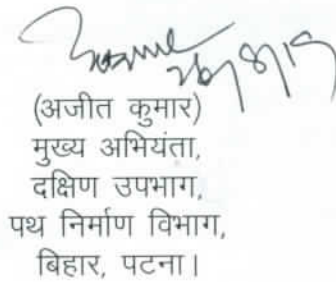 26/8/19
(अजीत कुमार)
मुख्य अभियंता,
दक्षिण उपभाग,
पथ निर्माण विभाग,
बिहार, पटना।